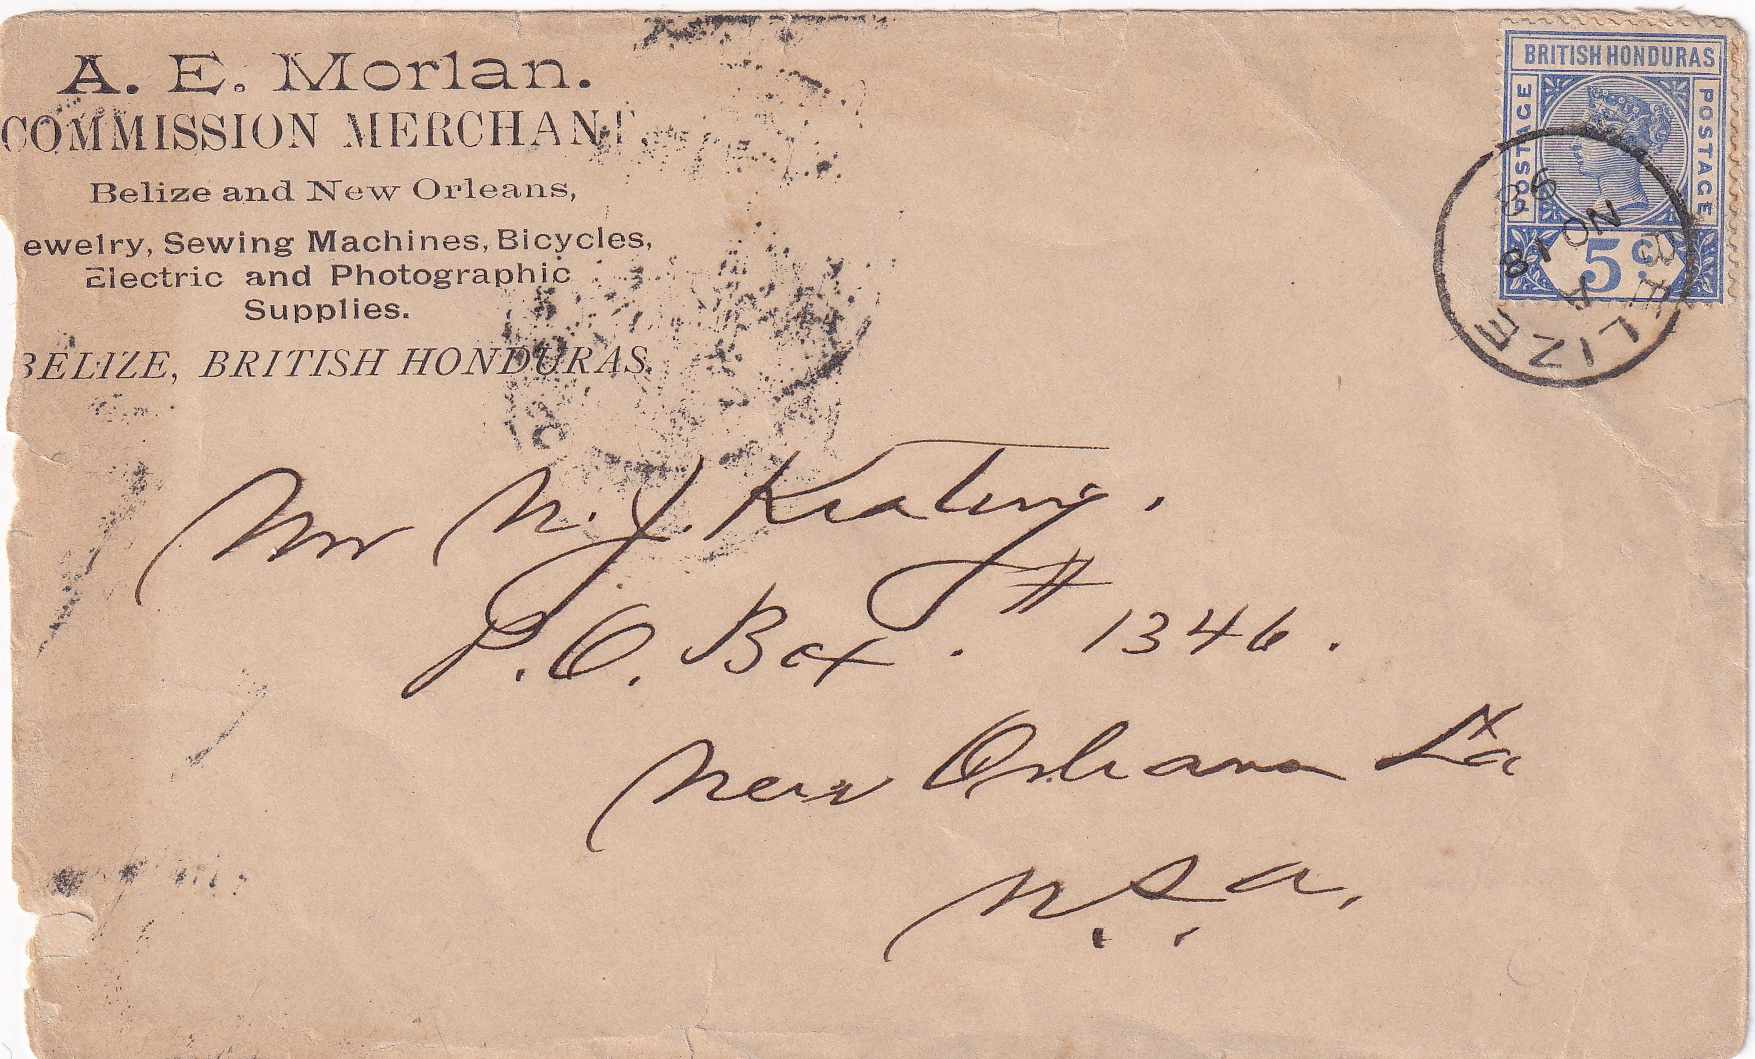 A. E. Morlan.
COMMISSION MERCHANT,
Belize and New Orleans,
ewelry, Sewing Machines, Bicycles,
Electric and Photographic
Supplies.
BELIZE, BRITISH HONDURAS.
BRITISH HONDURAS
POSTAGE
POSTAGE
5c
BELIZE
A
NO 18
98
Mr N. J. Keating.
P. O. Box. # 1346.
New Orleans La
U.S.A.